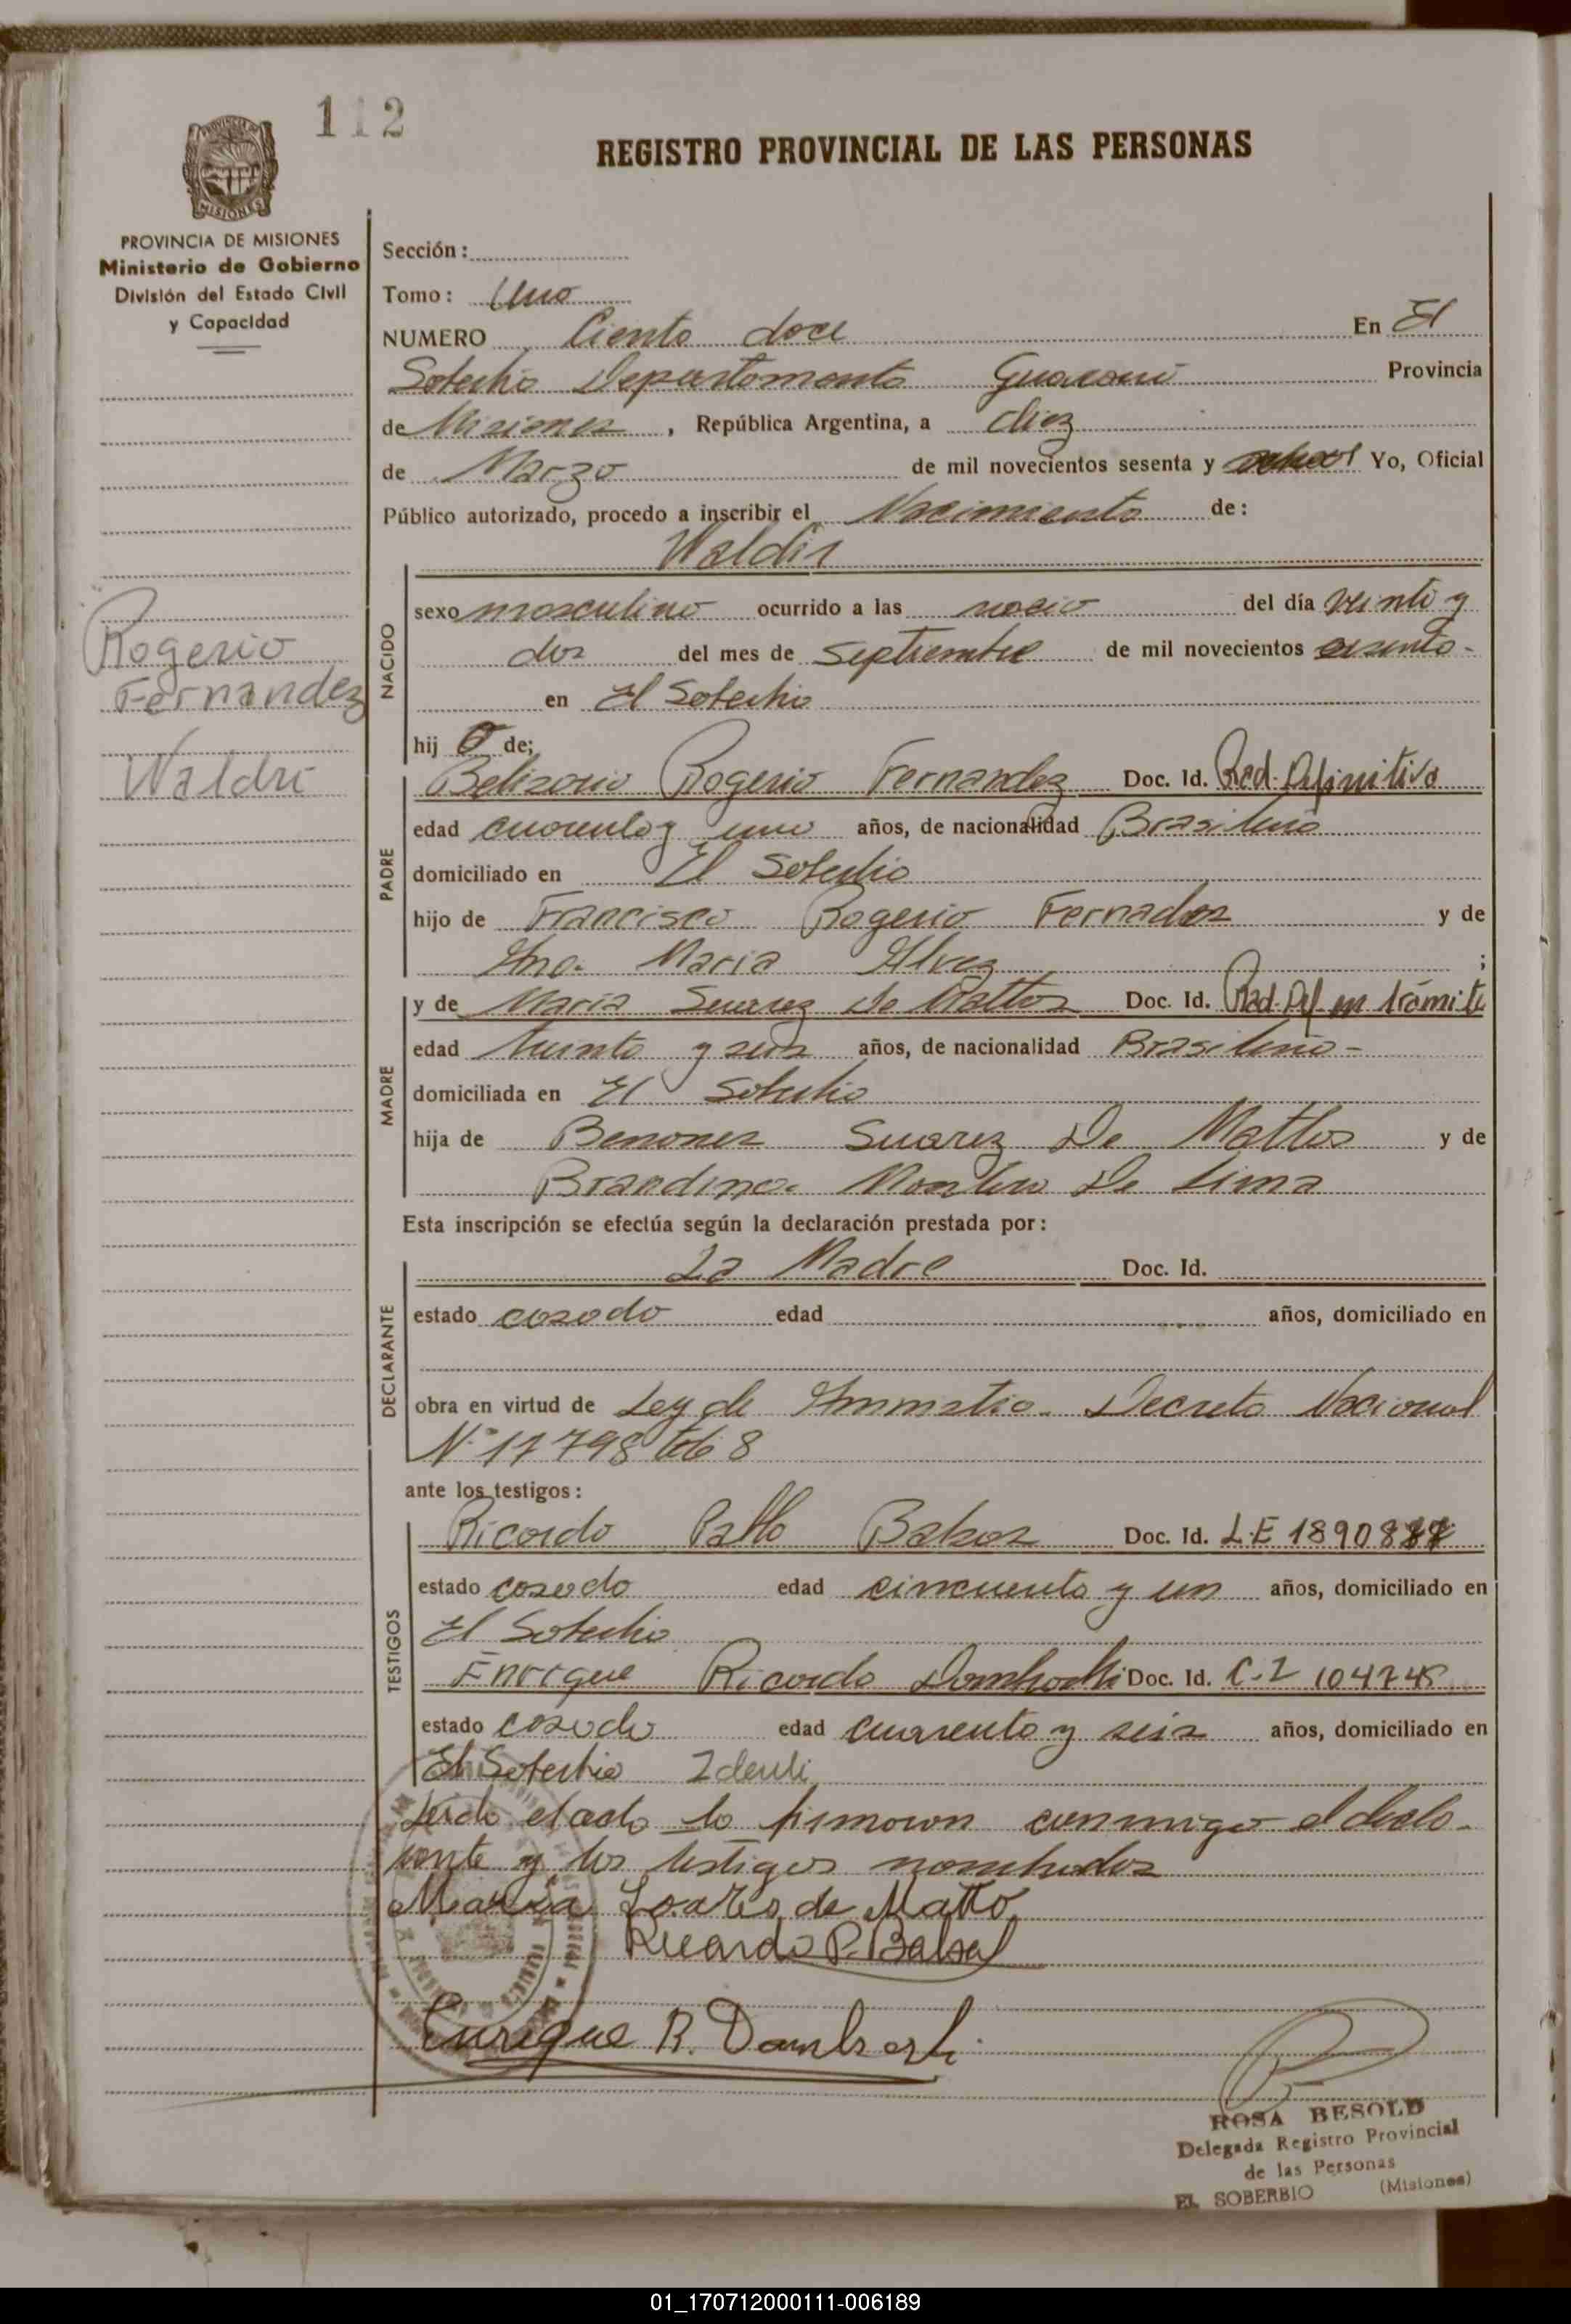 112
REGISTRO PROVINCIAL DE LAS PERSONAS
MISIONES
PROVINCIA DE MISIONES
Ministerio de Gobierno
División del Estado Civil
y Capacidad
Sección:
Tomo: Uno
NUMERO Ciento doce En El
Soberbio Departamento Guarani Provincia
de Misiones, República Argentina, a diez
de Marzo de mil novecientos sesenta y Yo, Oficial
Público autorizado, procedo a inscribir el Nacimiento de:
Waldir
NACIDO
sexo masculino ocurrido a las nacio del día veinti y
dos del mes de Septiembre de mil novecientos sesenta-
en El Soberbio
hij o de;
Rogerio
Fernandez
Waldir
PADRE
Belizario Rogerio Fernandez Doc. Id. Rad. Definitiva
edad cuarenta y uno años, de nacionalidad Brasileña
domiciliado en El Soberbio
hijo de Francisco Rogerio Fernadez y de
Ana Maria Alvez ;
MADRE
y de Maria Suarez De Mattos Doc. Id. Rad. Def en trámite
edad treinta y seis años, de nacionalidad Brasileña-
domiciliada en El Soberbio
hija de Benones Suarez De Mattos y de
Brandina De Lima
Esta inscripción se efectúa según la declaración prestada por:
DECLARANTE
La Madre Doc. Id.
estado casado edad años, domiciliado en
obra en virtud de Ley de Ammistia Decreto Nacional
Nº 17798
ante los testigos:
TESTIGOS
Ricardo Pablo Doc. Id. L.E 18908
estado casado edad cincuenta y un años, domiciliado en
El Soberbio
Enrique Ricardo Doc. Id. C.I 104745
estado casado edad cuarenta y seis años, domiciliado en
El Soberbio
Leido el acta la firmaron conmigo el decla-
rante y los testigos nombrados
Maria Soares de Matto
Ricardo P. Balsa
Enrique R.
ROSA BESOLD
Delegada Registro Provincial
de las Personas
EL SOBERBIO (Misiones)
01_170712000111-006189